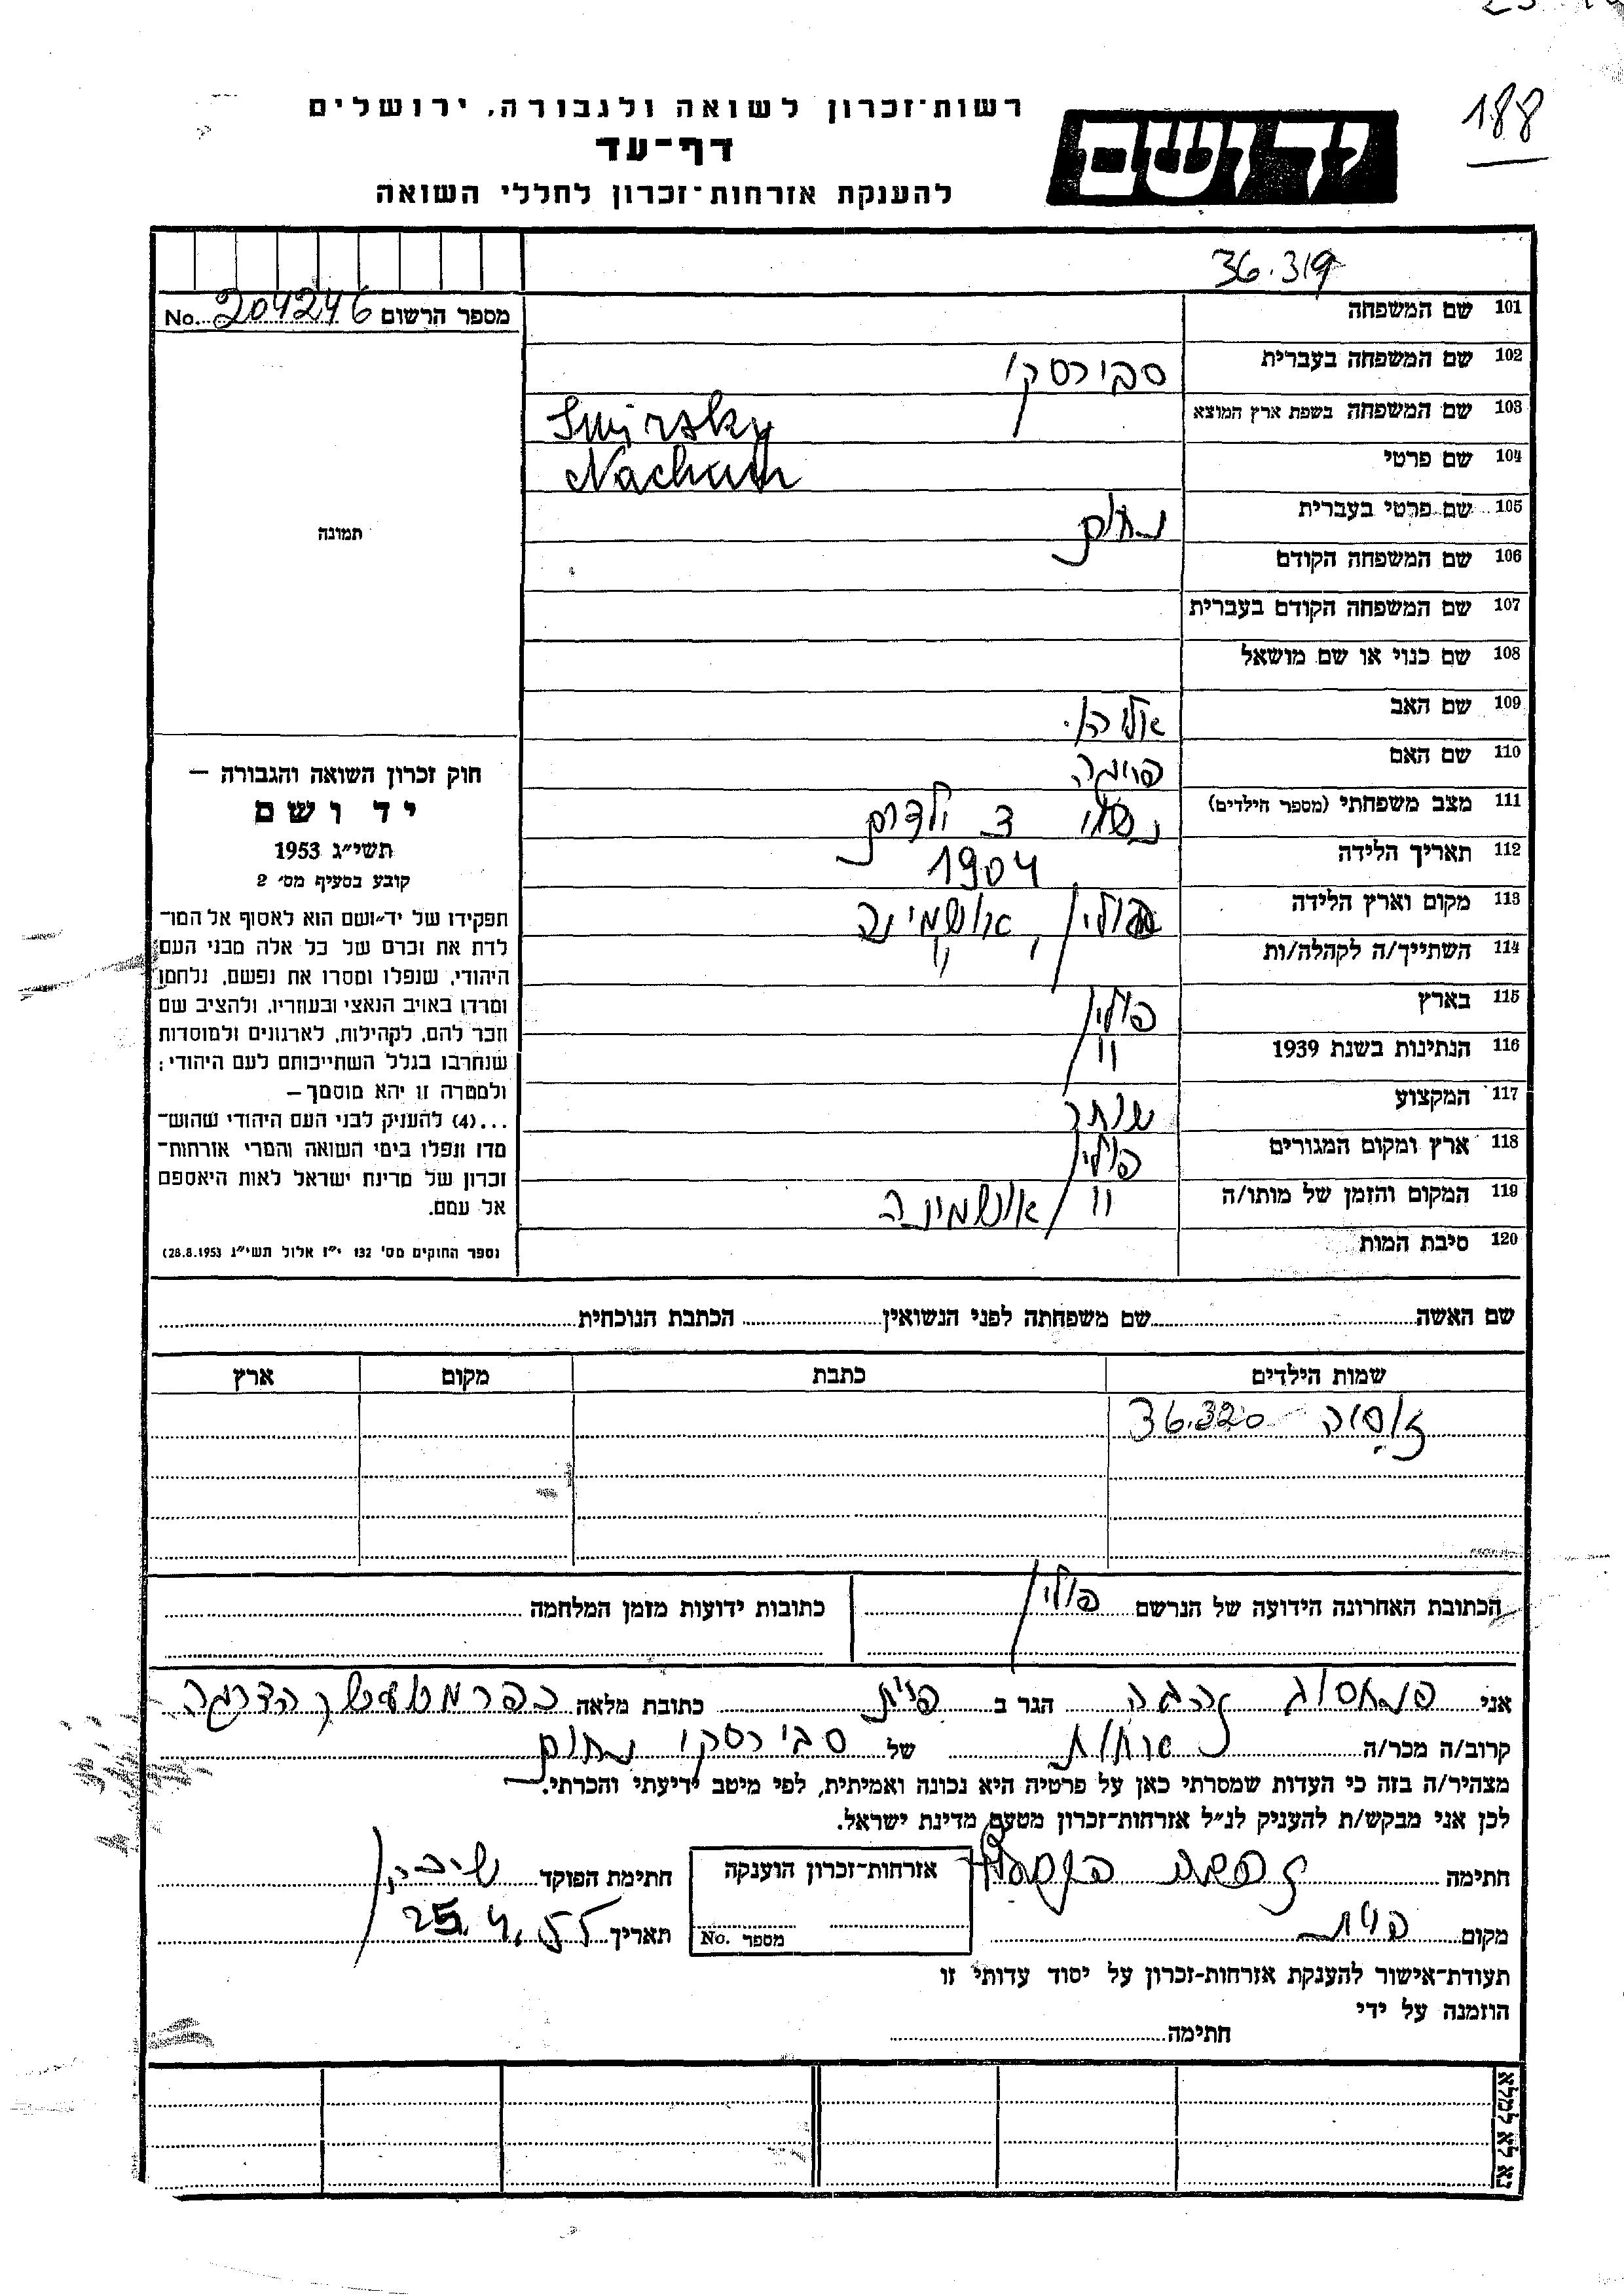 188
רשות־זכרון לשואה ולגבורה, ירושלים
יד ושם
דף־עד
להענקת אזרחות־זכרון לחללי השואה
36.319
מספר הרשום 204246 No.
תמונה
101 שם המשפחה
102 שם המשפחה בעברית סבירסקי
103 שם המשפחה בשפת ארץ המוצא Swirsky
104 שם פרטי Nachum
105 שם פרטי בעברית נחום
106 שם המשפחה הקודם
107 שם המשפחה הקודם בעברית
108 שם כנוי או שם מושאל
109 שם האב אליהו
110 שם האם פייגה
111 מצב משפחתי (מספר הילדים) נשוי ילדים
112 תאריך הלידה 1904
113 מקום וארץ הלידה פולין, אושמינה
114 השתייך/ה לקהלה/ות
115 בארץ פולין
116 הנתינות בשנת 1939 "
117 המקצוע סוחר
118 ארץ ומקום המגורים פולין
119 המקום והזמן של מותו/ה " אושמינה
120 סיבת המות
חוק זכרון השואה והגבורה –
יד ושם
תשי״ג 1953
קובע בסעיף מס׳ 2
תפקידו של יד־ושם הוא לאסוף אל המו־
לדת את זכרם של כל אלה מבני העם
היהודי, שנפלו ומסרו את נפשם, נלחמו
ומרדו באויב הנאצי ובעוזריו, ולהציב שם
וזכר להם, לקהילות, לארגונים ולמוסדות
שנחרבו בגלל השתייכותם לעם היהודי;
ולמטרה זו יהא מוסמך–
...(4) להעניק לבני העם היהודי שהוש־
מדו ונפלו בימי השואה והמרי אזרחות־
זכרון של מדינת ישראל לאות היאספם
אל עמם.
(ספר החוקים מס׳ 132 י״ז אלול תשי״ג 28.8.1953)
שם האשה שם משפחתה לפני הנשואין הכתבת הנוכחית
שמות הילדים כתבת מקום ארץ
36.320
הכתובת האחרונה הידועה של הנרשם פולין כתובות ידועות מזמן המלחמה
אני הגר ב כתובת מלאה
קרוב/ה מכר/ה של סבירסקי נחום
מצהיר/ה בזה כי העדות שמסרתי כאן על פרטיה היא נכונה ואמיתית, לפי מיטב ידיעתי והכרתי.
לכן אני מבקש/ת להעניק לנ״ל אזרחות־זכרון מטעם מדינת ישראל.
חתימה אזרחות־זכרון הוענקה חתימת הפוקד
מקום מספר No. תאריך 25.4.55
תעודת־אישור להענקת אזרחות־זכרון על יסוד עדותי זו
הוזמנה על ידי
חתימה
נא לא למלא